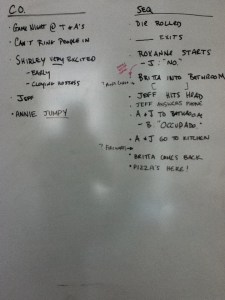 C.O.
• GAME NIGHT @ T + A'S
• CAN'T RING PEOPLE IN
• SHIRLEY VERY EXCITED
- EARLY
- CLAIMING HOSTESS
• JEFF
• ANNIE JUMPY
SEQ
• DIE ROLLED
• ____ EXITS
• ROXANNE STARTS
- J: "NO."
• BRITTA INTO BATHROOM
• JEFF HITS HEAD
• JEFF ANSWERS PHONE
• A + J TO BATHROOM
- B: "OCCUPADO."
• A + J GO TO KITCHEN
• BRITTA COMES BACK
• PIZZA'S HERE!